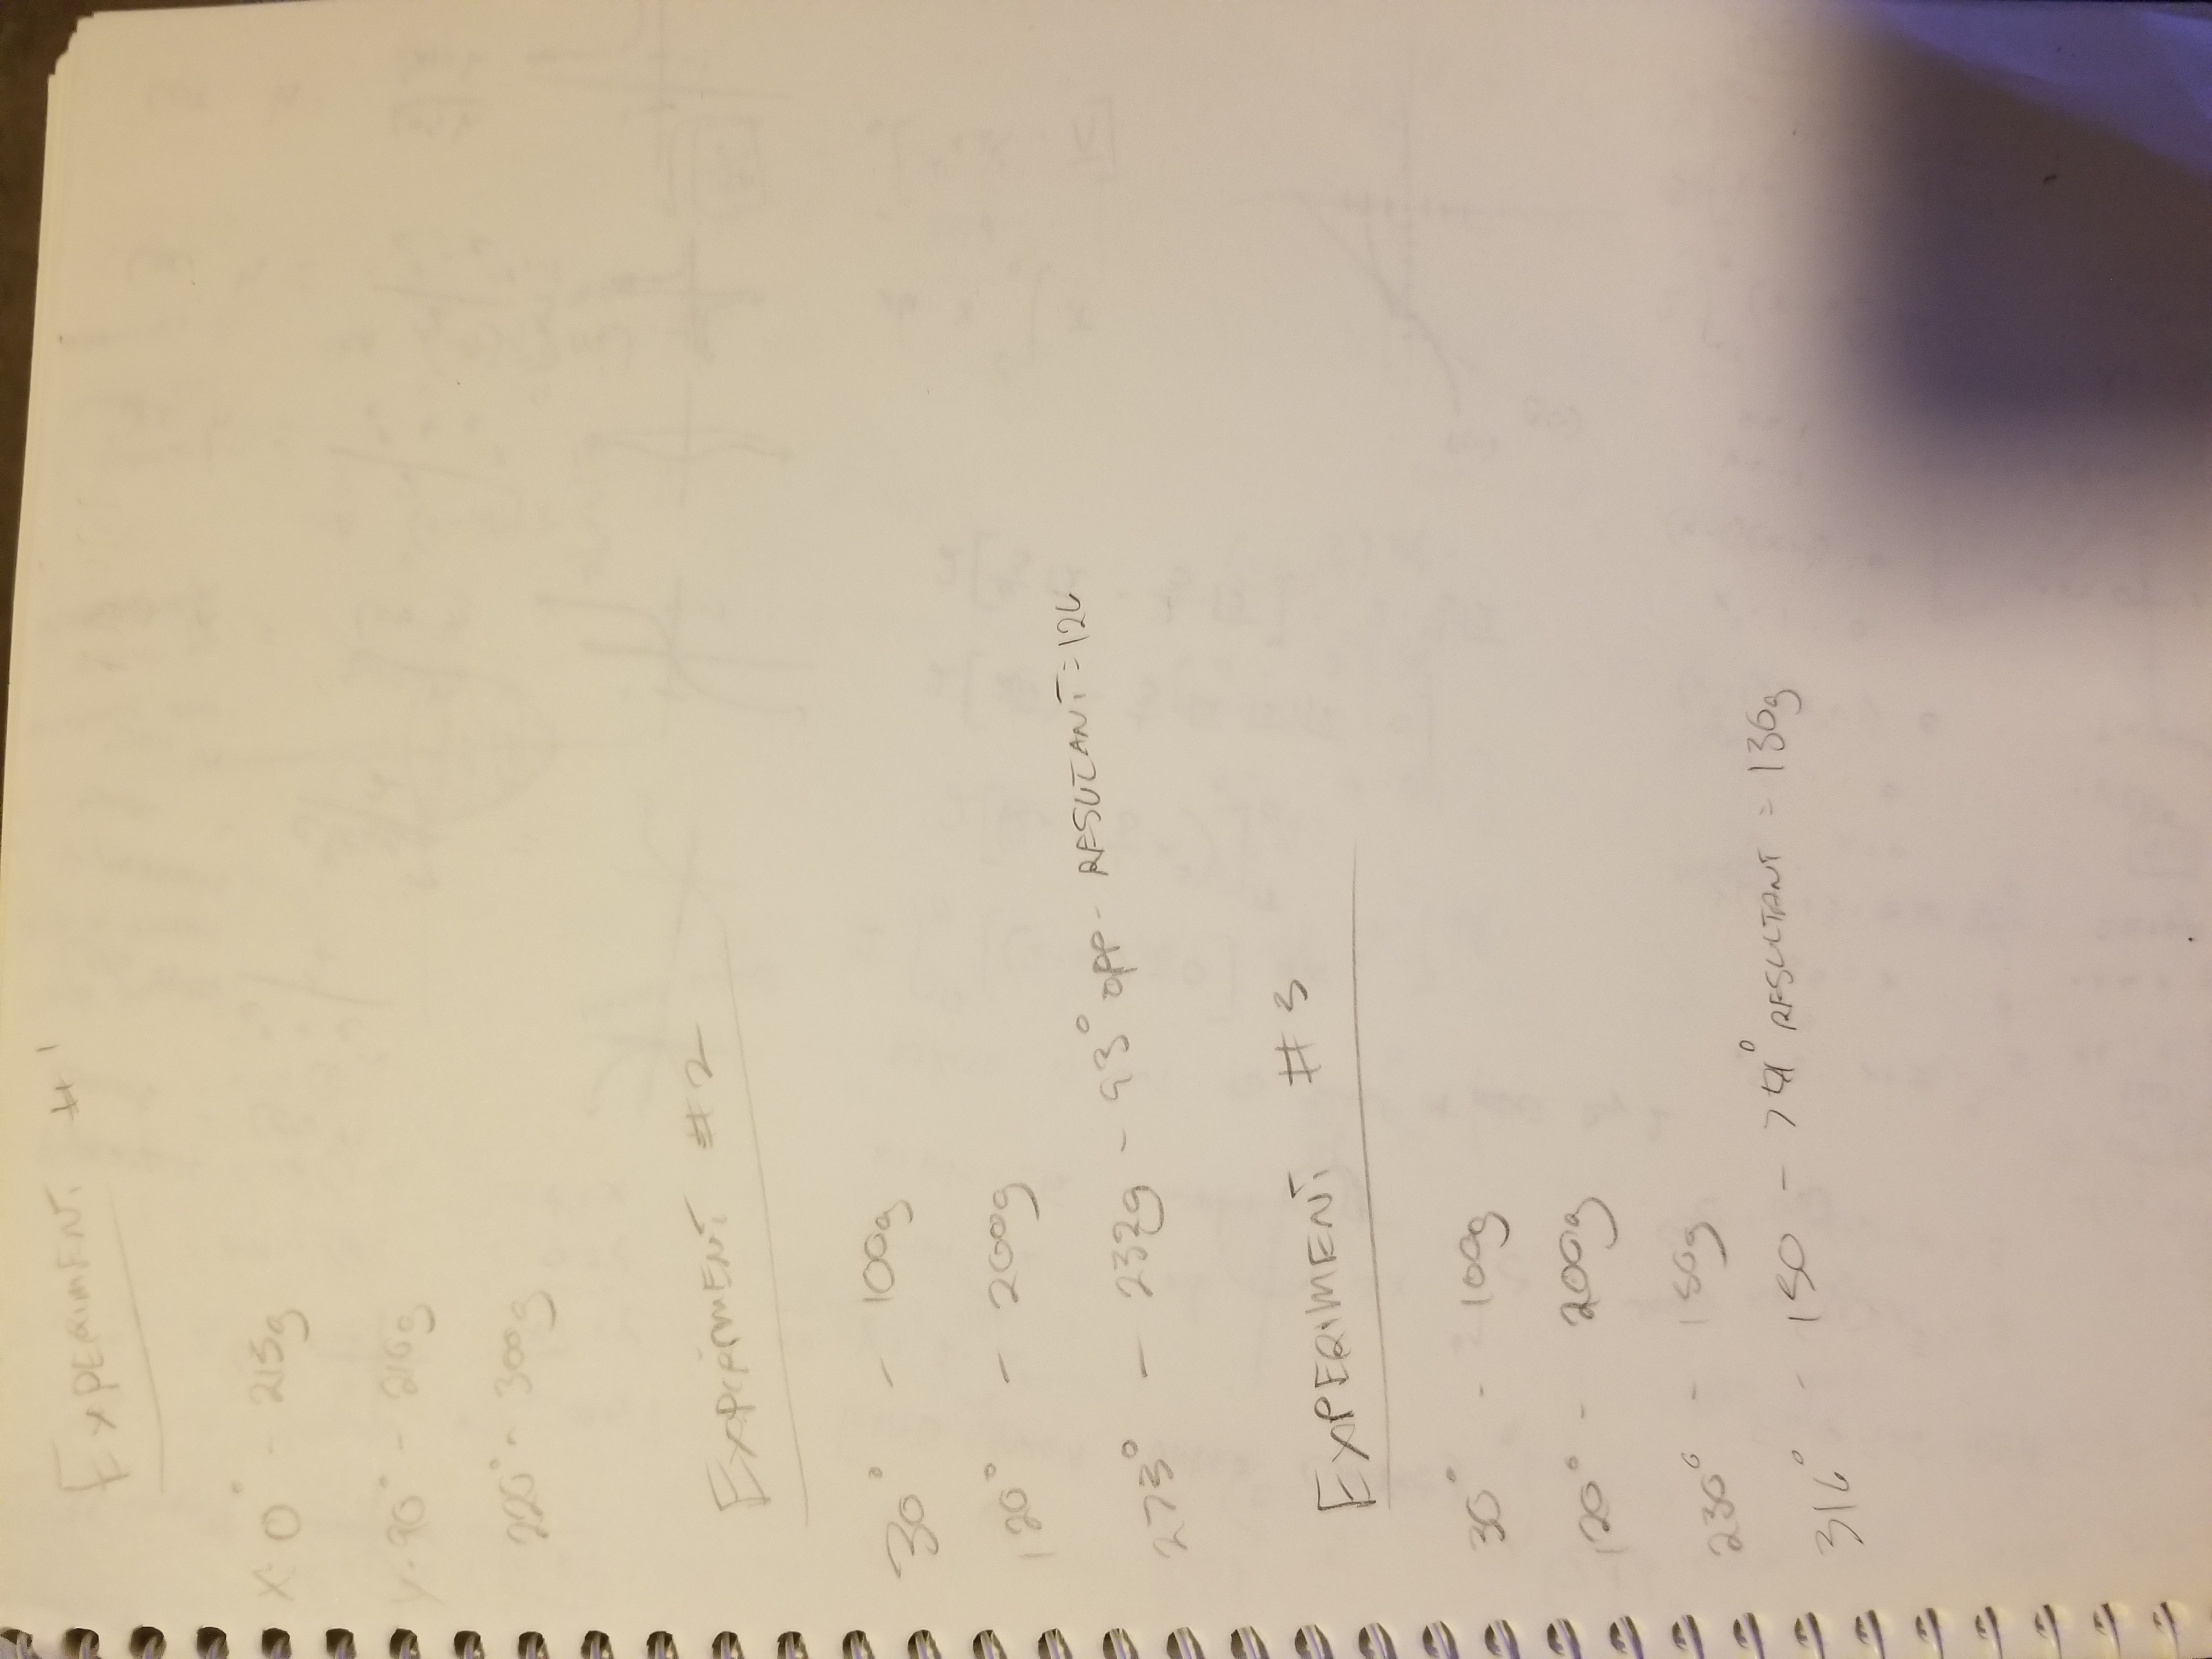 EXPERIMENT #1
X- 0° - 215g
Y- 90° - 210g
220° - 300g
EXPERIMENT #2
30° - 100g
120° - 200g
273° - 232g - 93° OPP - RESULTANT = 126
EXPERIMENT #3
30° - 100g
120° - 200g
230° - 150g
316° - 150 - RESULTANT = 136g